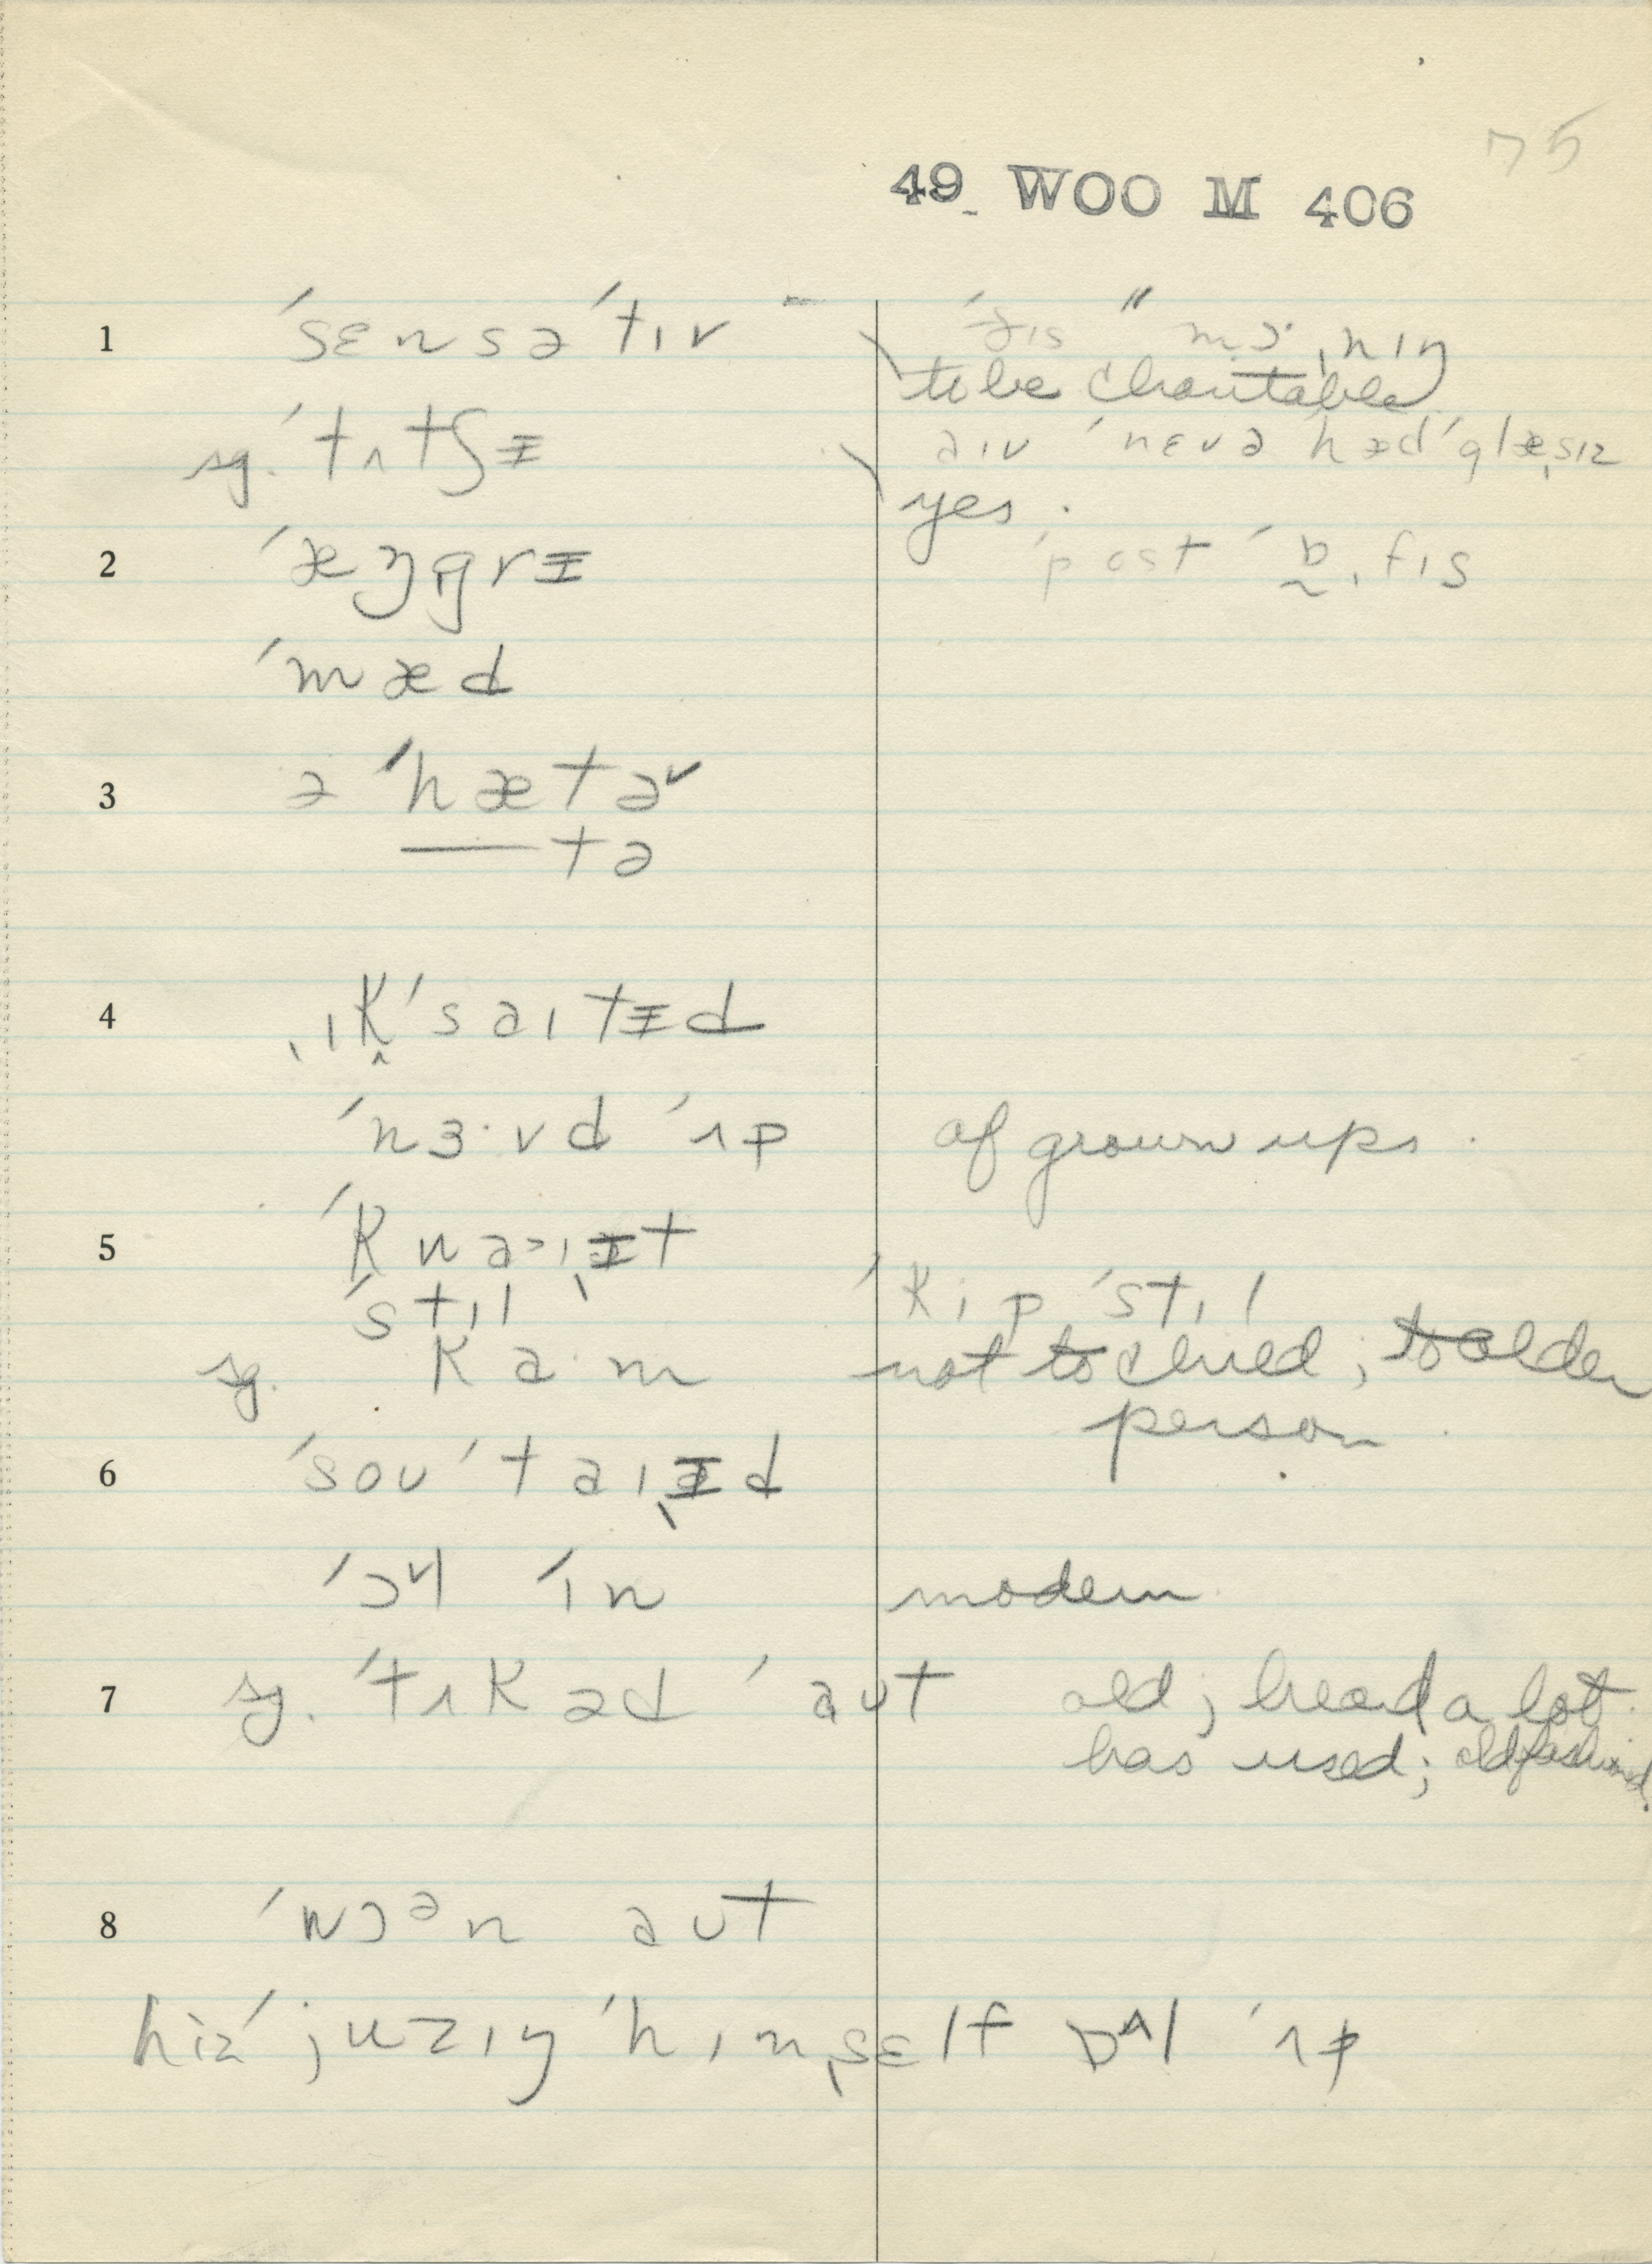 75
49 WOO M 406
1 ˈsɛnsəˈtɪv ˈðɪs " mɔ·ˌnɪŋ
to be charitable
sg. ˈtʌtʃɨ aɪv ˈnɛvə hædˈglæˌsɪz
yes.
2 ˈæŋgrɨ ˈpostˈɒ̰ˌfɪs
ˈmæd
3 ə ˈhætɚ
—— tə
4 ˌɪkˈsaɪtɨd
ˈnɜ·vd ˈʌp of grown ups.
5 ˈkwaɪˌɨt
ˈstɪl ˈkip ˈstɪl
sg. ka·m not to child; to older
person
6 ˈsouˈtaɪˌɨd
ˈɔl ˈɪn modern
7 sg. ˈtʌkəd ˈaut old; heard a lot.
has used; old fashioned.
8 ˈwɔᵊn aut
hizˈjuzɪŋ ˈhɪmˌsɛlf ɒl ˈʌp